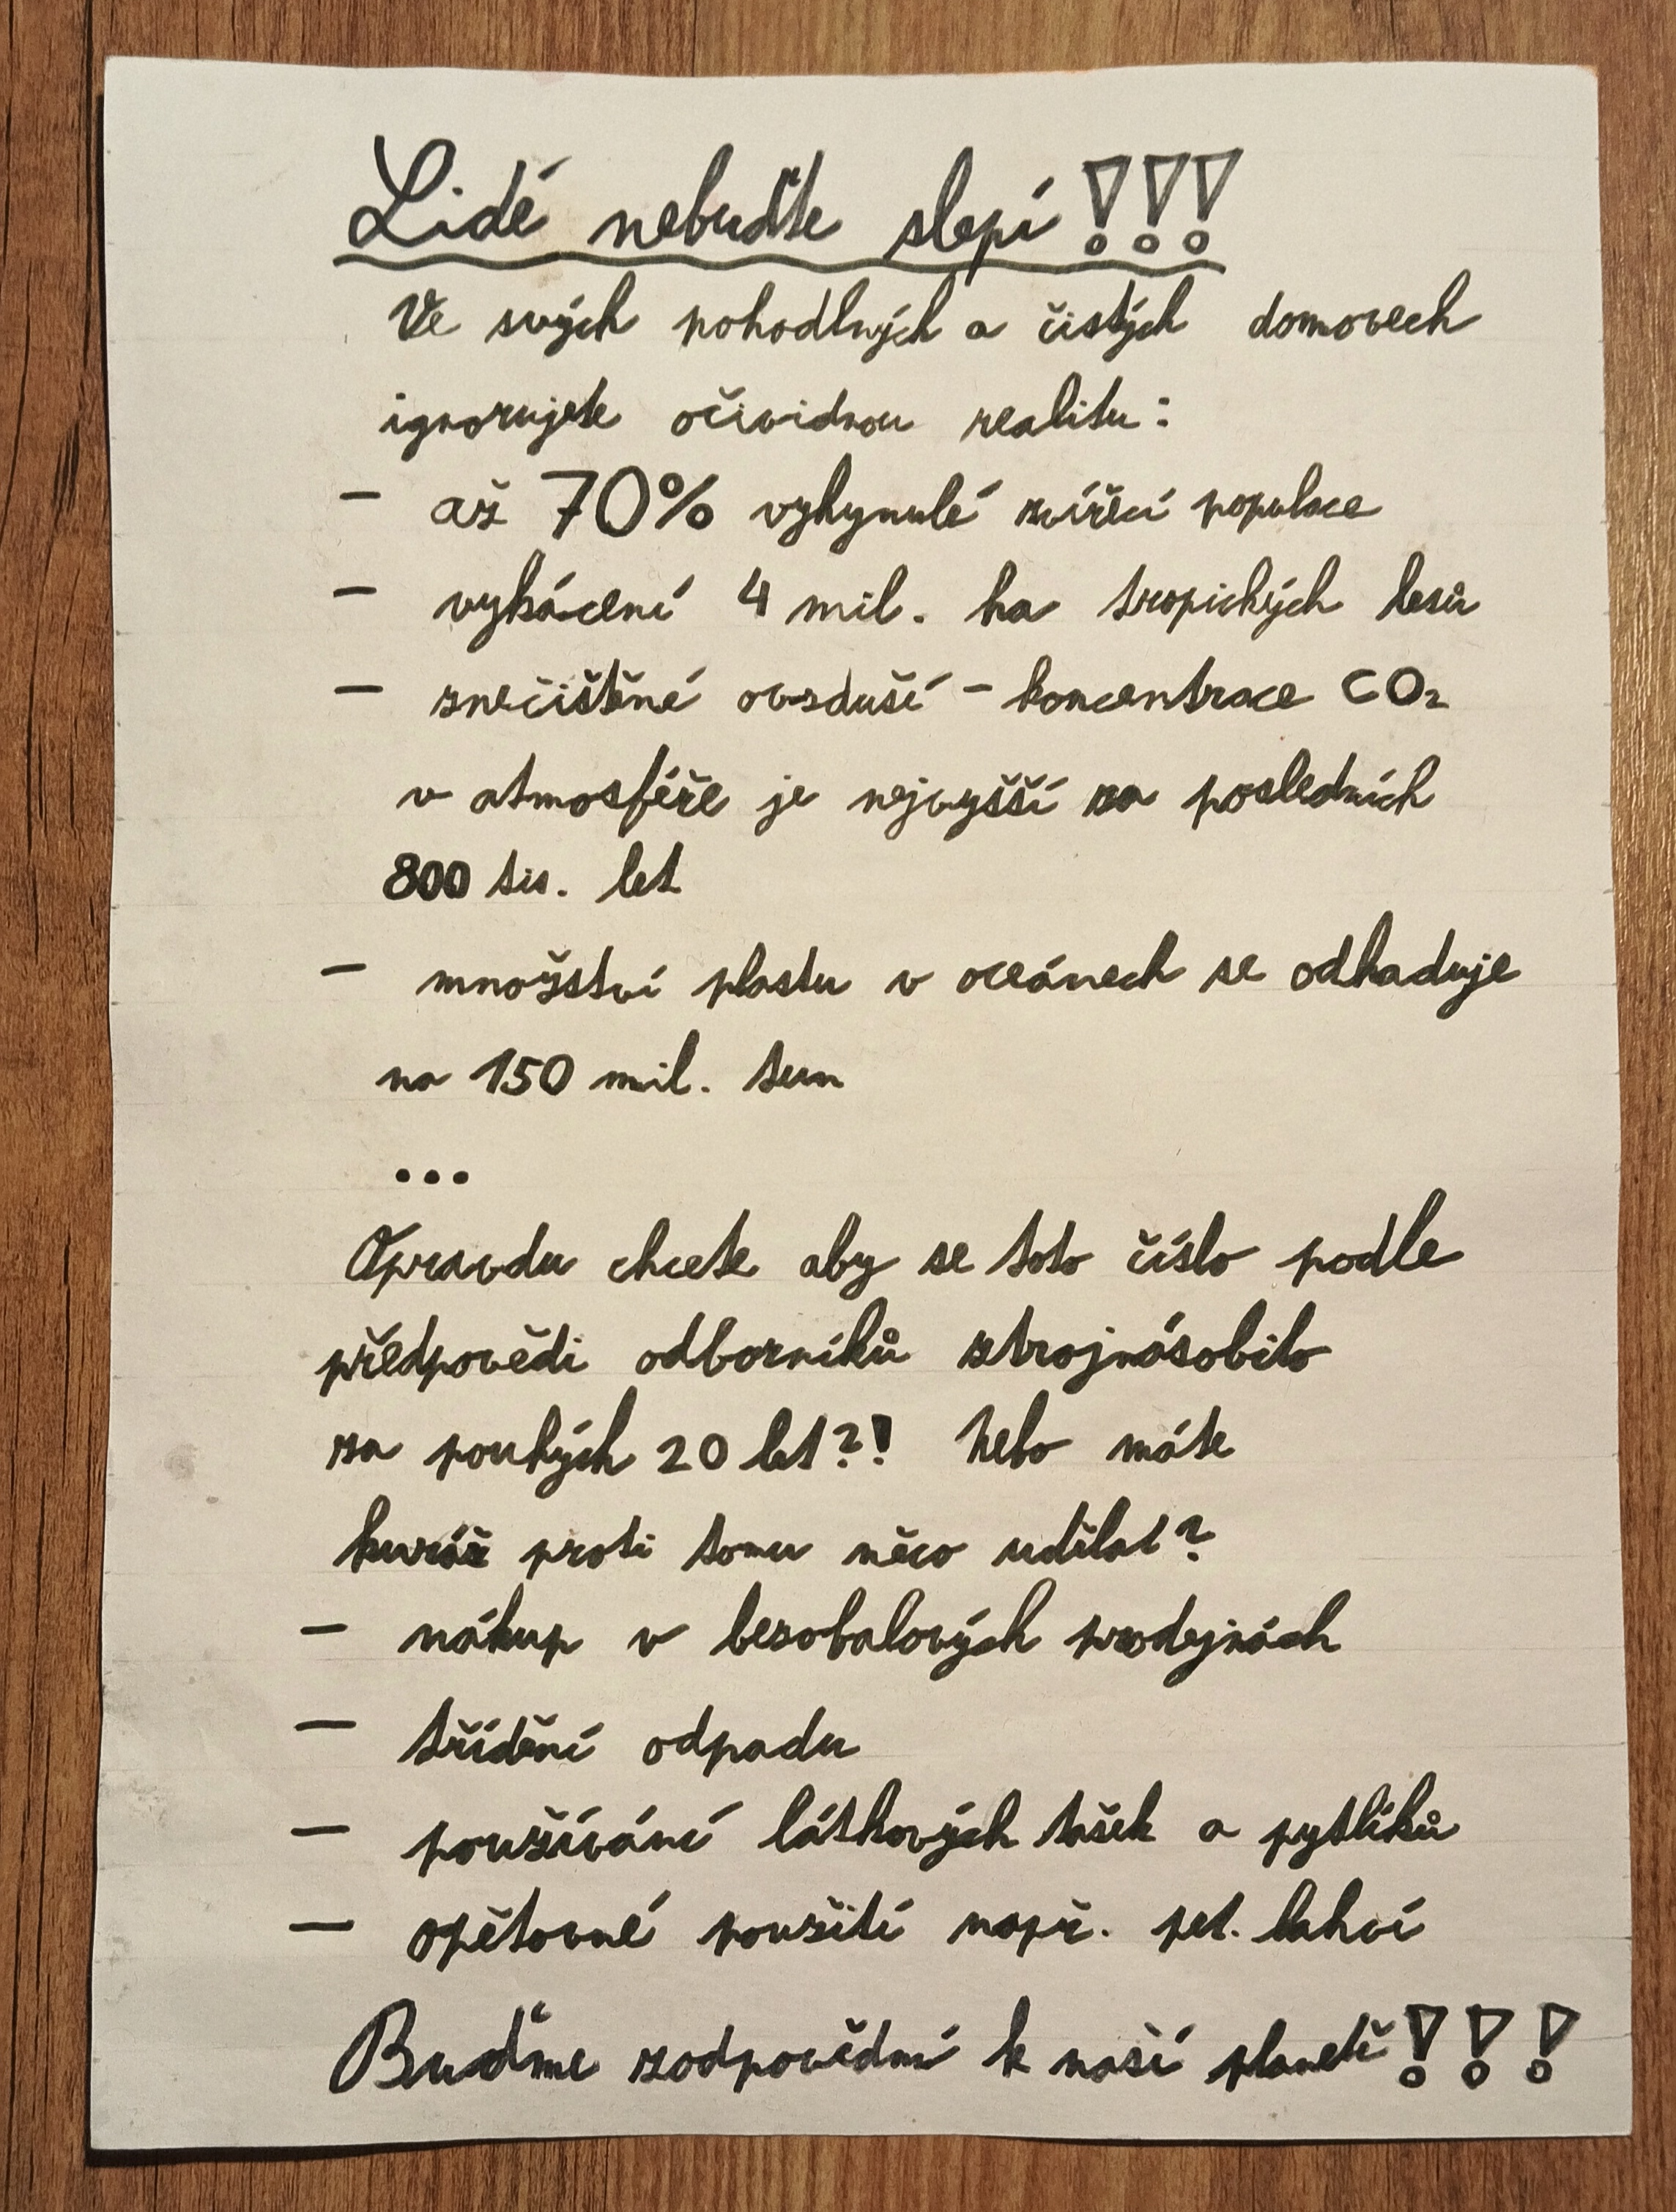 Lidé nebuďte slepí!!!
Ve svých pohodlných a čistých domovech
ignorujete očividnou realitu:
- až 70% vyhynulé zvířecí populace
- vykácení 4 mil. ha tropických lesů
- znečištěné ovzduší - koncentrace CO₂
v atmosféře je nejvyšší za posledních
800 tis. let
- množství plastu v oceánech se odhaduje
na 150 mil. tun
...
Opravdu chcete aby se toto číslo podle
předpovědi odborníků ztrojnásobilo
za pouhých 20 let?! Nebo máte
kuráž proti tomu něco udělat?
- nákup v bezobalových prodejnách
- třídění odpadu
- používání látkových tašek a pytlíků
- opětovné použití např. pet. lahví
Buďme zodpovědní k naší planetě!!!